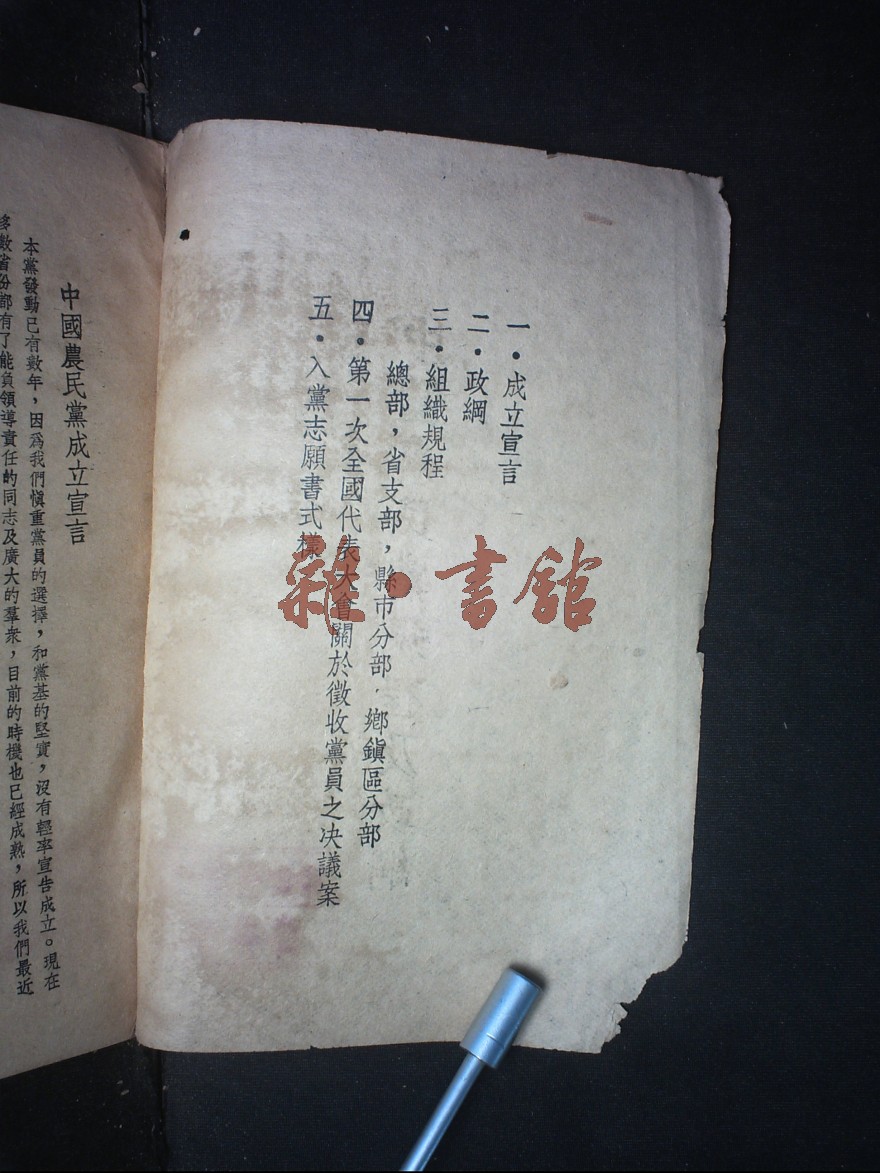 一・成立宣言
二・政綱
三・組織規程
總部，省支部，縣市分部，鄉鎮區分部
四・第一次全國代表大會關於徵收黨員之決議案
五・入黨志願書式樣
雜・書館
中國農民黨成立宣言
本黨發動已有數年，因爲我們慎重黨員的選擇，和黨基的堅實，沒有輕率宣告成立。現在
多數省份都有了能負領導責任的同志及廣大的羣衆，目前的時機也已經成熟，所以我們最近